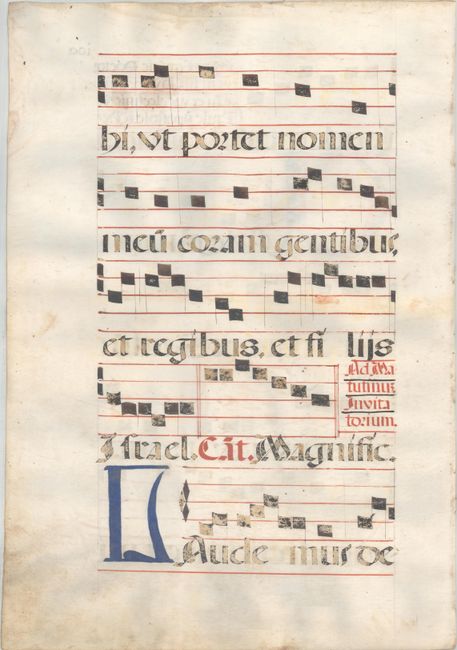 bi, vt portet nomen
meū coram gentibus,
et regibus, et fi lijs
Ad Ma
tutinus
Inuita
torium.
Israel. Cāt. Magnific.
LAude mus De